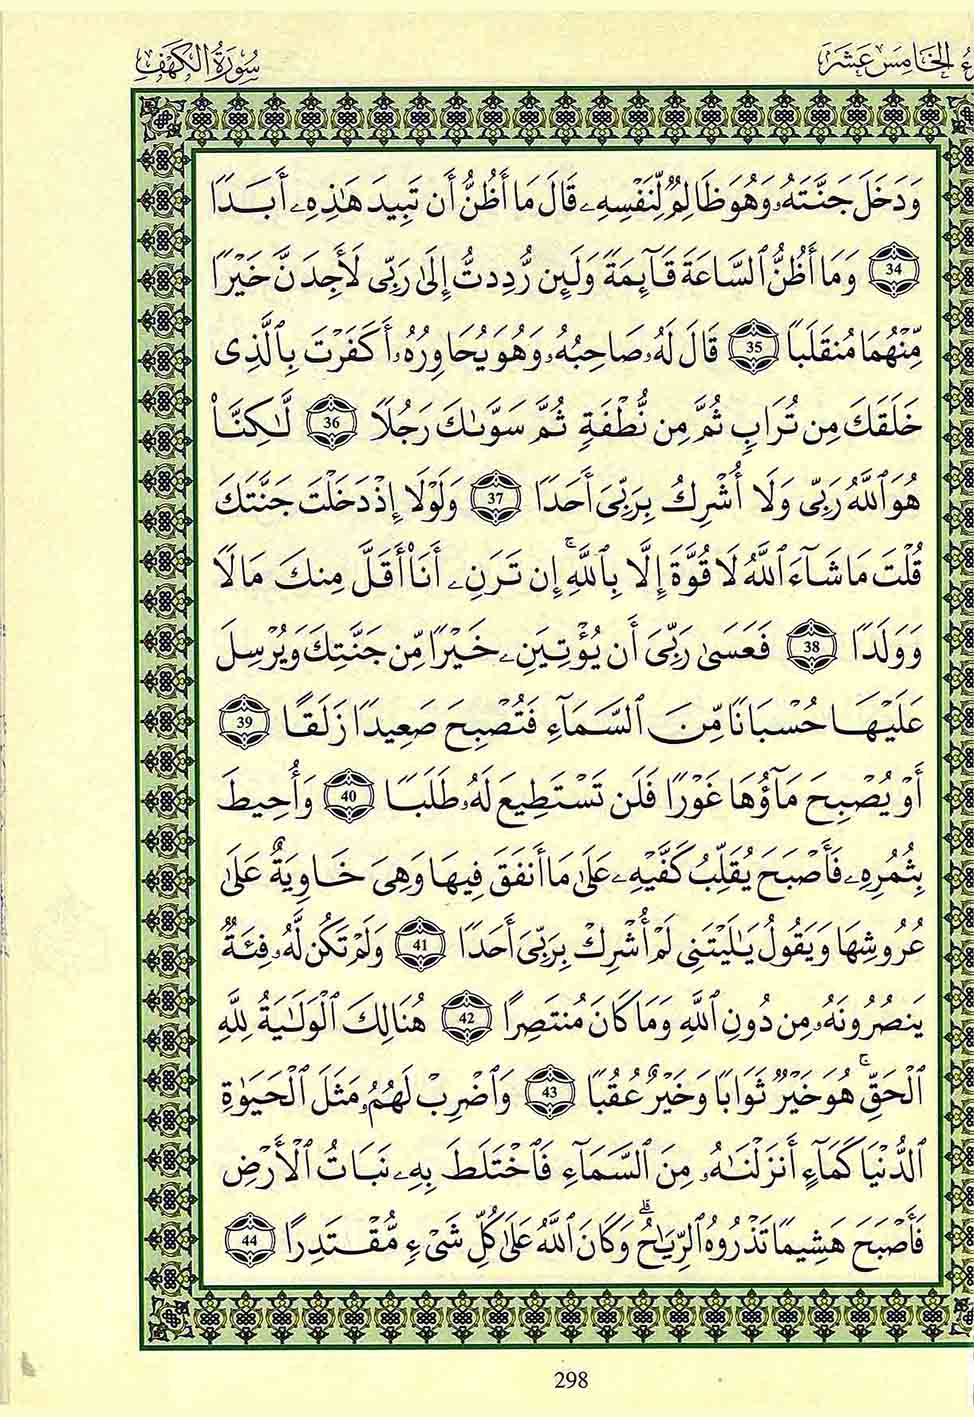 الخَامِسَ عَشَرَ
سُورَةُ الكَهْفِ
وَدَخَلَ جَنَّتَهُۥ وَهُوَ ظَالِمٌ لِّنَفْسِهِۦ قَالَ مَا أَظُنُّ أَن تَبِيدَ هَٰذِهِۦ أَبَدًا
34 وَمَا أَظُنُّ ٱلسَّاعَةَ قَآئِمَةً وَلَئِن رُّدِدتُّ إِلَىٰ رَبِّى لَأَجِدَنَّ خَيْرًا
مِّنْهُمَا مُنقَلَبًا 35 قَالَ لَهُۥ صَاحِبُهُۥ وَهُوَ يُحَاوِرُهُۥ أَكَفَرْتَ بِٱلَّذِى
خَلَقَكَ مِن تُرَابٍ ثُمَّ مِن نُّطْفَةٍ ثُمَّ سَوَّىٰكَ رَجُلًا 36 لَّٰكِنَّا۠
هُوَ ٱللَّهُ رَبِّى وَلَا أُشْرِكُ بِرَبِّىَ أَحَدًا 37 وَلَوْلَا إِذْ دَخَلْتَ جَنَّتَكَ
قُلْتَ مَا شَآءَ ٱللَّهُ لَا قُوَّةَ إِلَّا بِٱللَّهِ ۚ إِن تَرَنِۦ أَنَا۠ أَقَلَّ مِنكَ مَالًا
وَوَلَدًا 38 فَعَسَىٰ رَبِّىَ أَن يُؤْتِيَنِۦ خَيْرًا مِّن جَنَّتِكَ وَيُرْسِلَ
عَلَيْهَا حُسْبَانًا مِّنَ ٱلسَّمَآءِ فَتُصْبِحَ صَعِيدًا زَلَقًا 39
أَوْ يُصْبِحَ مَآؤُهَا غَوْرًا فَلَن تَسْتَطِيعَ لَهُۥ طَلَبًا 40 وَأُحِيطَ
بِثُمُرِهِۦ فَأَصْبَحَ يُقَلِّبُ كَفَّيْهِۦ عَلَىٰ مَا أَنفَقَ فِيهَا وَهِىَ خَاوِيَةٌ عَلَىٰ
عُرُوشِهَا وَيَقُولُ يَٰلَيْتَنِى لَمْ أُشْرِكْ بِرَبِّىَ أَحَدًا 41 وَلَمْ تَكُن لَّهُۥ فِئَةٌ
يَنصُرُونَهُۥ مِن دُونِ ٱللَّهِ وَمَا كَانَ مُنتَصِرًا 42 هُنَالِكَ ٱلْوَلَٰيَةُ لِلَّهِ
ٱلْحَقِّ ۚ هُوَ خَيْرٌ ثَوَابًا وَخَيْرٌ عُقُبًا 43 وَٱضْرِبْ لَهُمُۥ مَثَلَ ٱلْحَيَوٰةِ
ٱلدُّنْيَا كَمَآءٍ أَنزَلْنَٰهُۥ مِنَ ٱلسَّمَآءِ فَٱخْتَلَطَ بِهِۦ نَبَاتُ ٱلْأَرْضِ
فَأَصْبَحَ هَشِيمًا تَذْرُوهُ ٱلرِّيَٰحُ ۗ وَكَانَ ٱللَّهُ عَلَىٰ كُلِّ شَىْءٍ مُّقْتَدِرًا 44
298